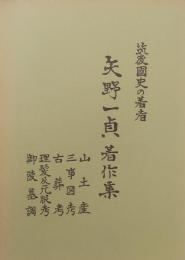 筑後國史の著者
矢野一貞著作集
山土産
三事図考
古葬考
理髪及元服考
御陵墓調